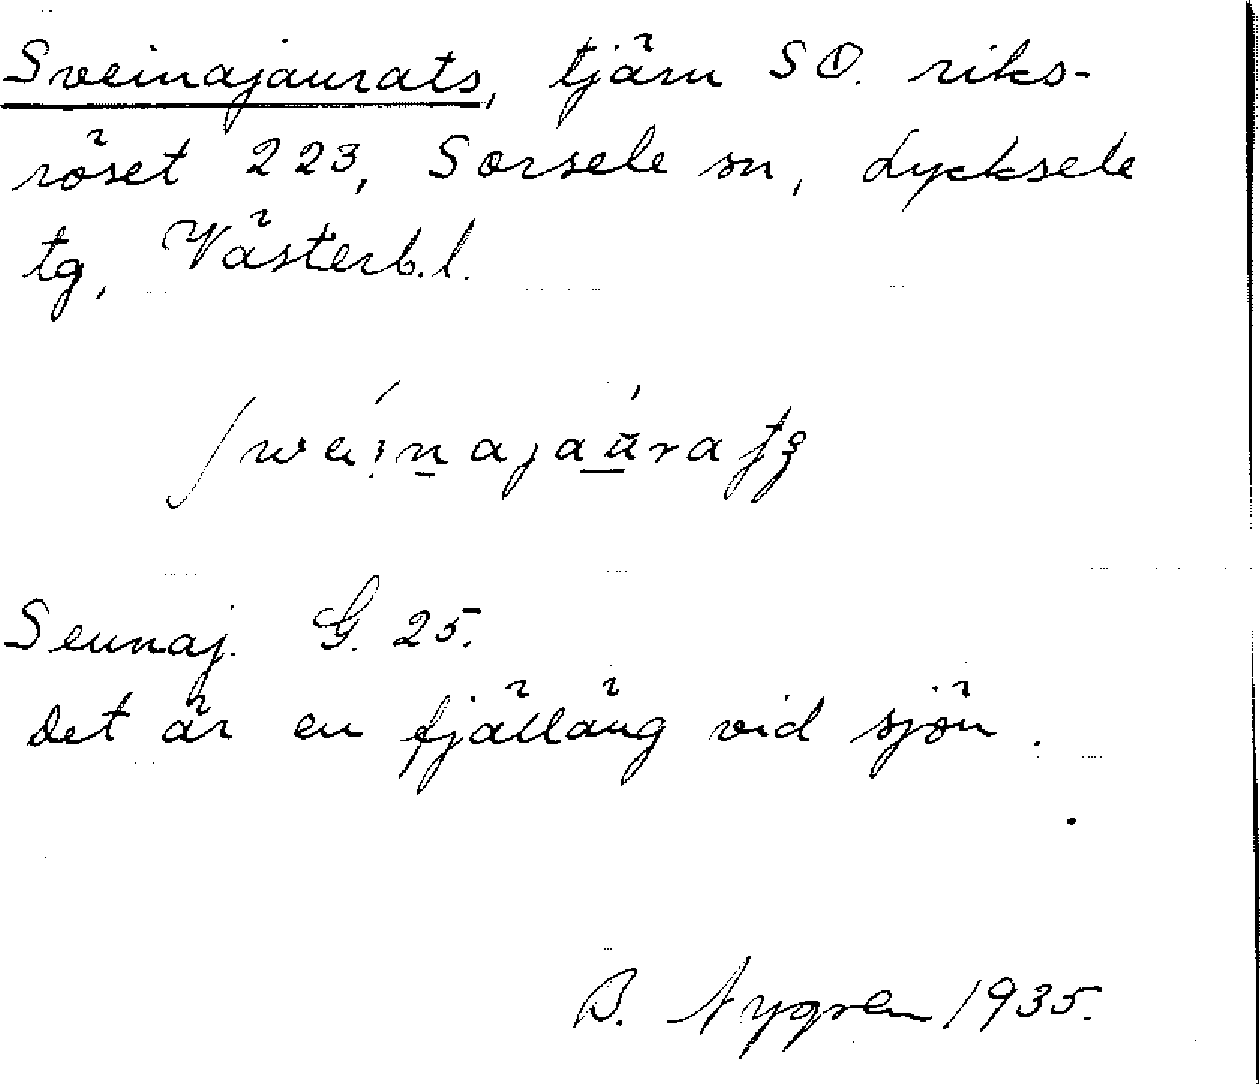 Sveinajaurats, tjärn SO. riks-
röset 223, Sorsele sn, Lycksele
tg, Västerb.l.
Seunaj. G. 25.
det är en fjälläng vid sjön.
B. Nygren 1935.